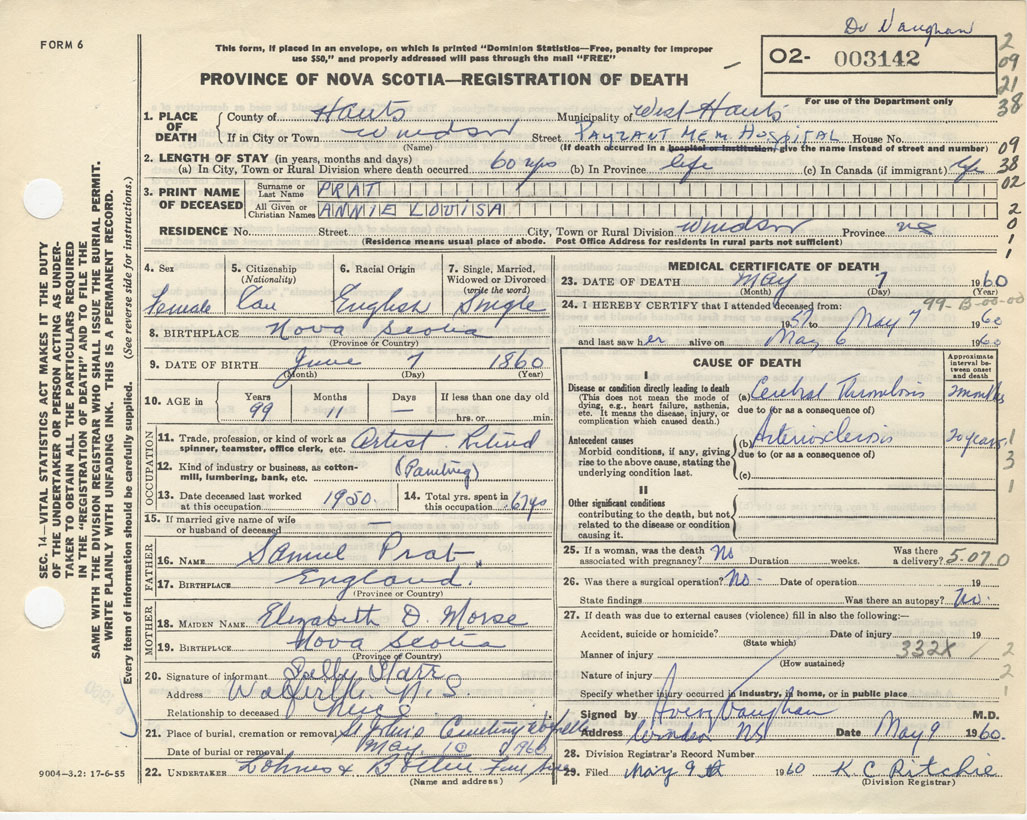 Dr Vaughan
FORM 6
This form, if placed in an envelope, on which is printed "Dominion Statistics—Free, penalty for improper
use $50," and properly addressed will pass through the mail "FREE"
O2- 003142
For use of the Department only
2
09
21
38
09
38
02
2
0
1
1
PROVINCE OF NOVA SCOTIA—REGISTRATION OF DEATH
1. PLACE OF DEATH
County of Hants Municipality of West Hants
If in City or Town Windsor Street PAYZANT MEM. HOSPITAL House No.
(Name) (If death occurred in a hospital or institution, give the name instead of street and number)
2. LENGTH OF STAY (in years, months and days)
(a) In City, Town or Rural Division where death occurred 60 yrs (b) In Province life (c) In Canada (if immigrant) life
3. PRINT NAME OF DECEASED
Surname or Last Name PRAT
All Given or Christian Names ANNIE LOUISA
RESIDENCE No. Street City, Town or Rural Division Windsor Province NS
(Residence means usual place of abode. Post Office Address for residents in rural parts not sufficient)
4. Sex Female
5. Citizenship (Nationality) Can
6. Racial Origin English
7. Single, Married, Widowed or Divorced (write the word) Single
8. BIRTHPLACE Nova Scotia
(Province or Country)
9. DATE OF BIRTH June 7 1860
(Month) (Day) (Year)
10. AGE in Years 99 Months 11 Days — If less than one day old hrs. or min.
OCCUPATION
11. Trade, profession, or kind of work as spinner, teamster, office clerk, etc. Artist Retired
12. Kind of industry or business, as cotton-mill, lumbering, bank, etc. (Painting)
13. Date deceased last worked at this occupation 1950.
14. Total yrs. spent in this occupation 67 yrs
15. If married give name of wife or husband of deceased —
FATHER
16. NAME Samuel Prat
17. BIRTHPLACE England.
(Province or Country)
MOTHER
18. MAIDEN NAME Elizabeth D. Morse
19. BIRTHPLACE Nova Scotia
(Province or Country)
20. Signature of informant Sally Starr
Address Wolfville N.S
Relationship to deceased Niece
21. Place of burial, cremation or removal St John's Cemetery Wolfville
Date of burial or removal May 10 1960
22. UNDERTAKER Lohnes &
(Name and address)
MEDICAL CERTIFICATE OF DEATH
23. DATE OF DEATH May 7 1960
(Month) (Day) (Year)
99-B-00-00
24. I HEREBY CERTIFY that I attended deceased from:
1957 to May 7 1960
and last saw her alive on May 6 1960
CAUSE OF DEATH
Approximate interval between onset and death
I
Disease or condition directly leading to death
(This does not mean the mode of dying, e.g., heart failure, asthenia, etc. It means the disease, injury, or complication which caused death.)
(a) Cerebral Thrombosis 2 months
due to (or as a consequence of)
Antecedent causes
Morbid conditions, if any, giving rise to the above cause, stating the underlying condition last.
(b) Arteriosclerosis 20 years
due to (or as a consequence of)
(c)
1
3
1
II
Other significant conditions
contributing to the death, but not related to the disease or condition causing it.
25. If a woman, was the death associated with pregnancy? No Duration weeks. Was there a delivery?
5.07.0
26. Was there a surgical operation? No - Date of operation 19
State findings Was there an autopsy? No.
27. If death was due to external causes (violence) fill in also the following:—
Accident, suicide or homicide? Date of injury 19
(State which)
Manner of injury 332X / 2
(How sustained)
Nature of injury 2
1
Specify whether injury occurred in industry, in home, or in public place
Signed by Avery Vaughan M.D.
Address Windsor NS Date May 9 1960.
28. Division Registrar's Record Number
29. Filed May 9th 1960 K C Ritchie
(Division Registrar)
9004-3.2: 17-6-55
SEC. 14—VITAL STATISTICS ACT MAKES IT THE DUTY
OF THE UNDERTAKER OR PERSON ACTING AS UNDER-
TAKER TO OBTAIN ALL THE PARTICULARS REQUIRED
IN THE "REGISTRATION OF DEATH" AND TO FILE THE
SAME WITH THE DIVISION REGISTRAR WHO SHALL ISSUE THE BURIAL PERMIT.
WRITE PLAINLY WITH UNFADING INK. THIS IS A PERMANENT RECORD.
Every item of information should be carefully supplied. (See reverse side for instructions.)